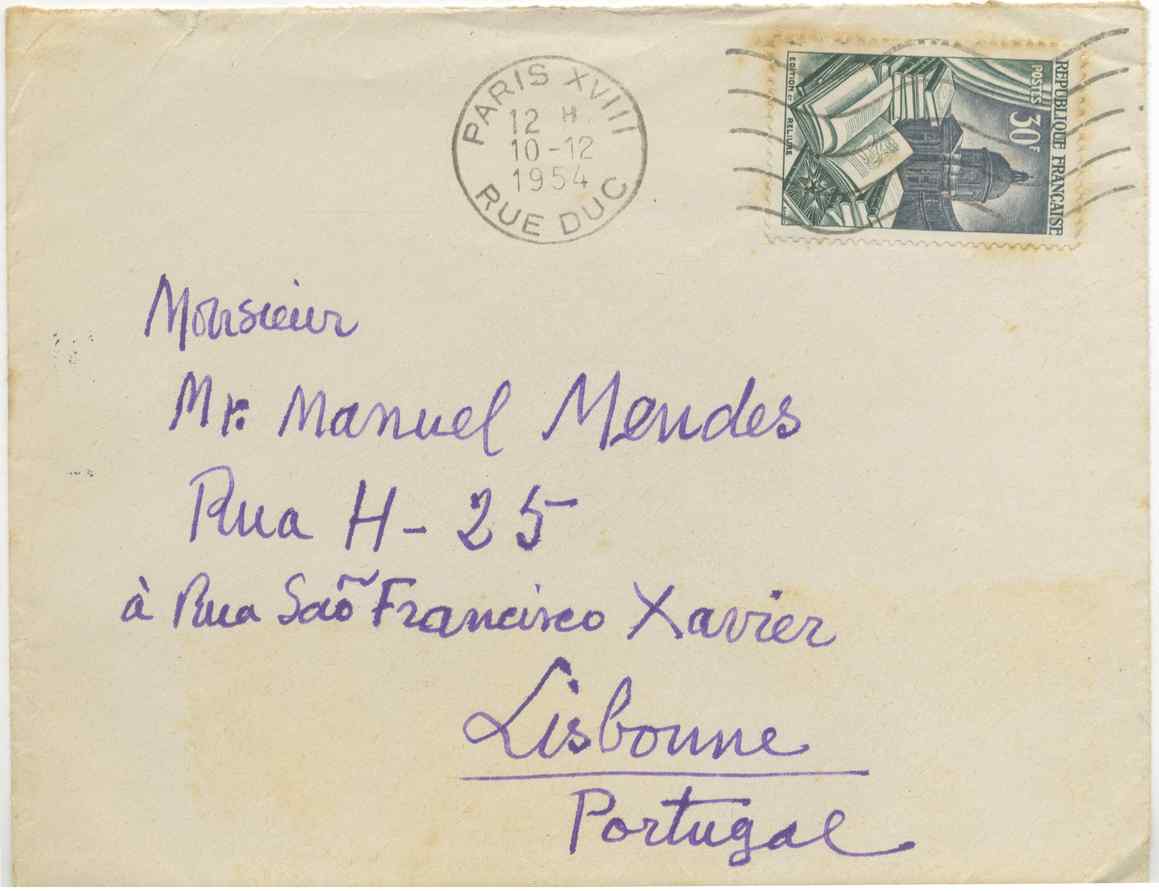 PARIS XVIII
12 H.
10-12
1954
RUE DUC
REPUBLIQUE FRANÇAISE
POSTES
30F
EDITION ET RELIURE
Monsieur
Mr. Manuel Mendes
Rua H - 25
à Rua São Francisco Xavier
Lisbonne
Portugal